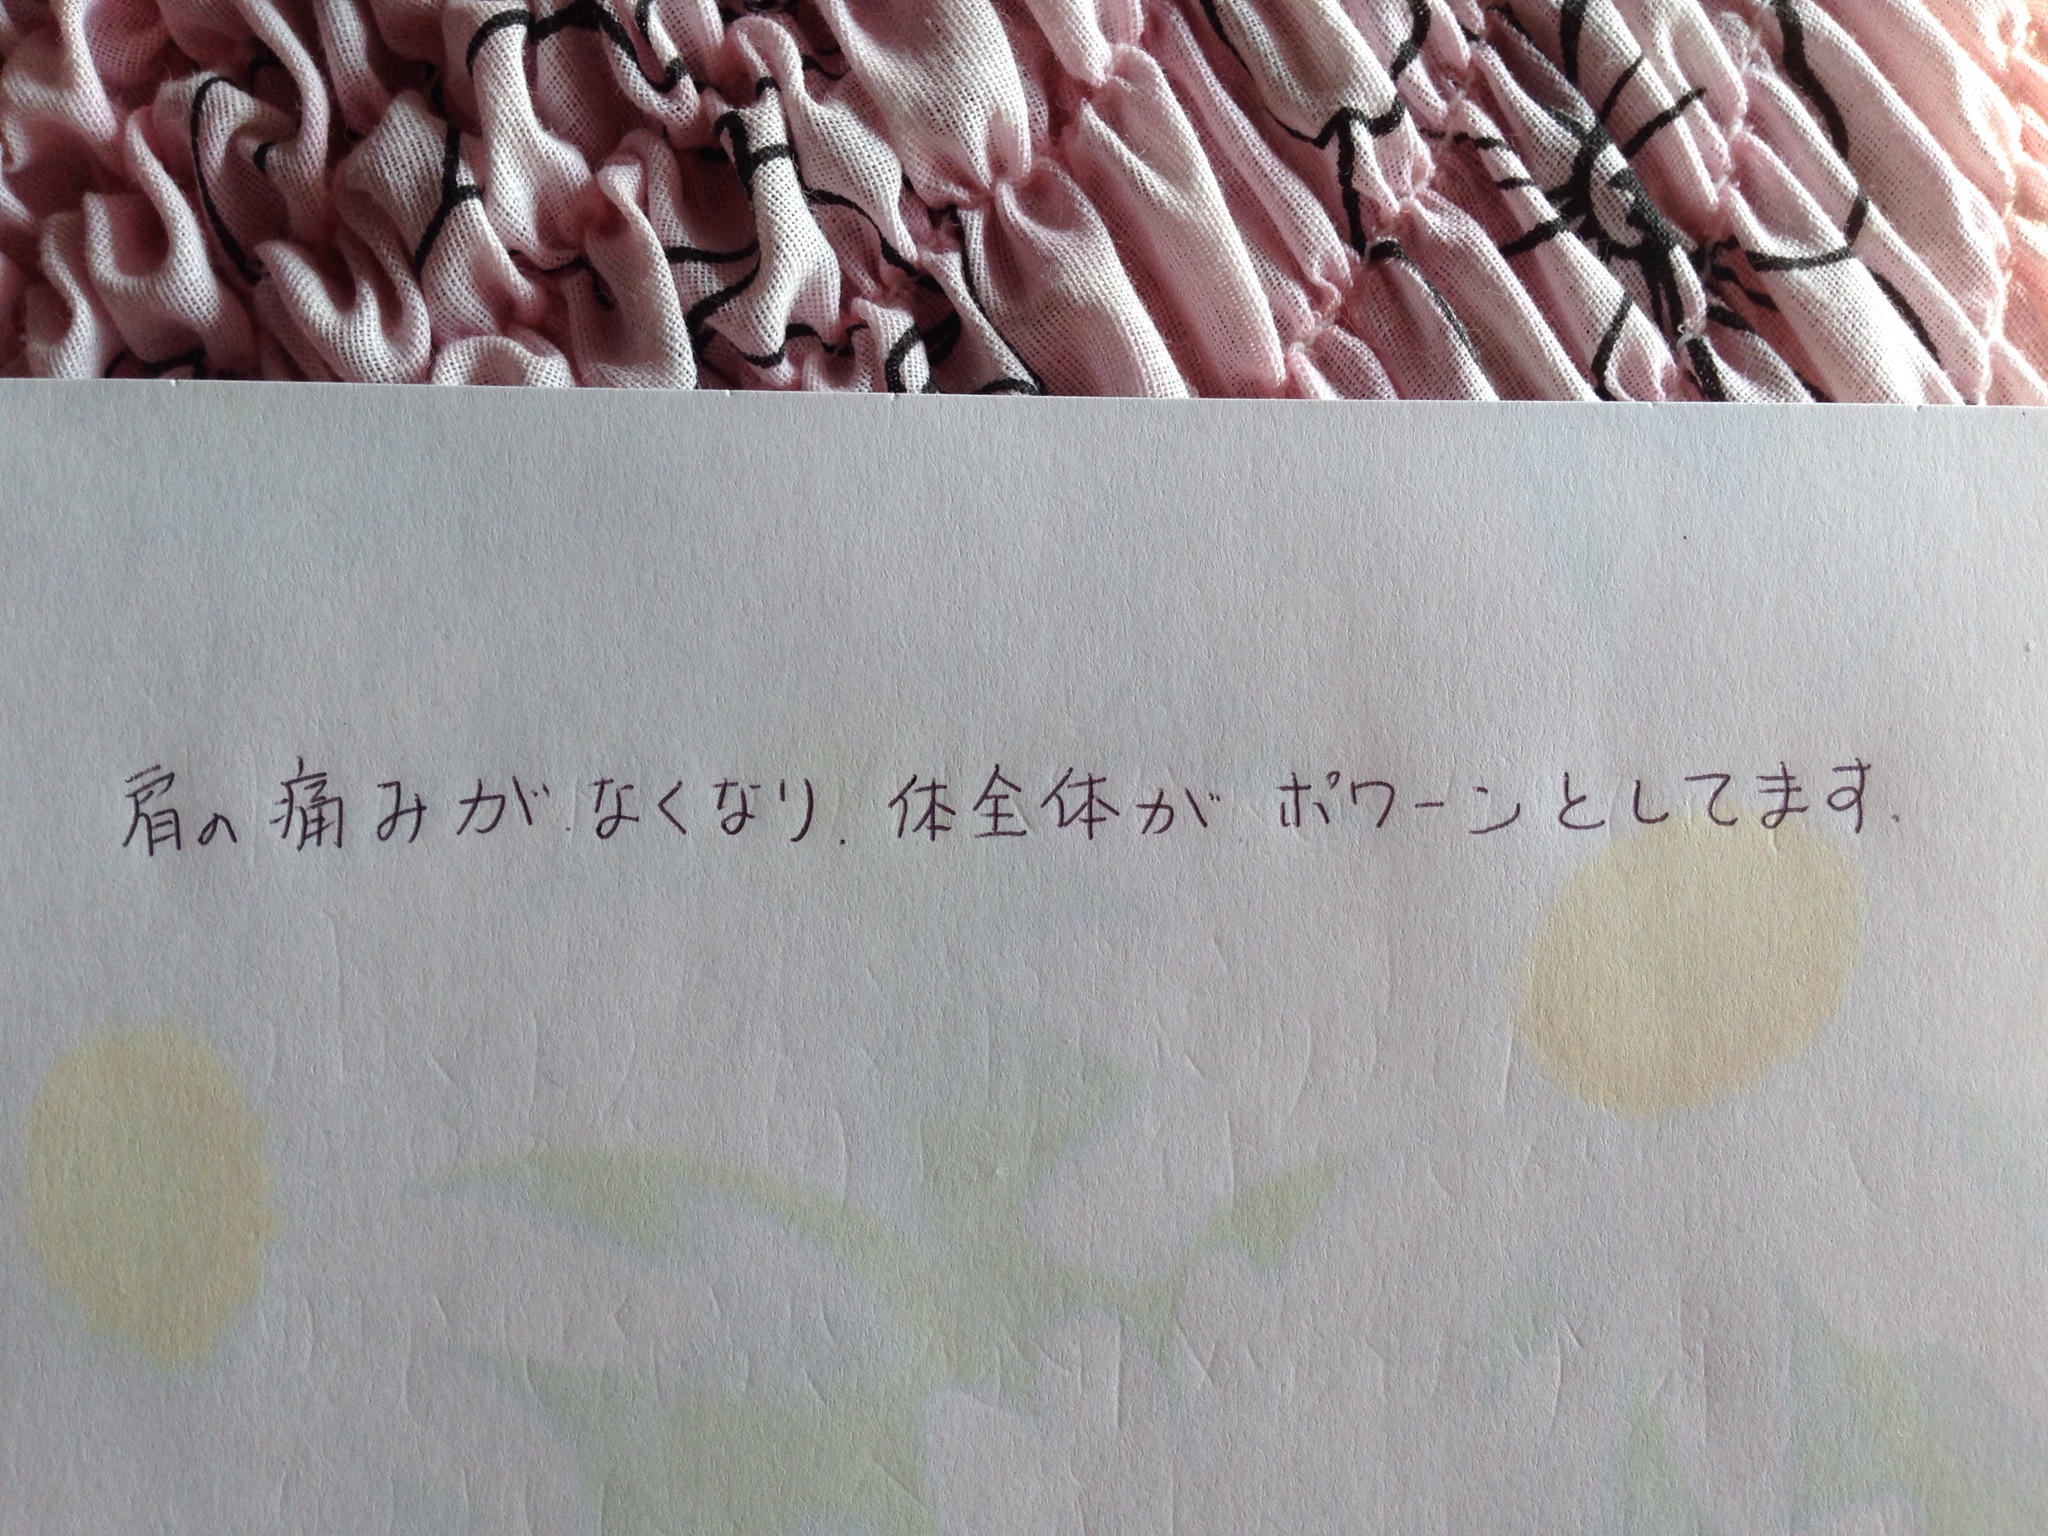 肩の痛みがなくなり、体全体がポワーンとしてます.